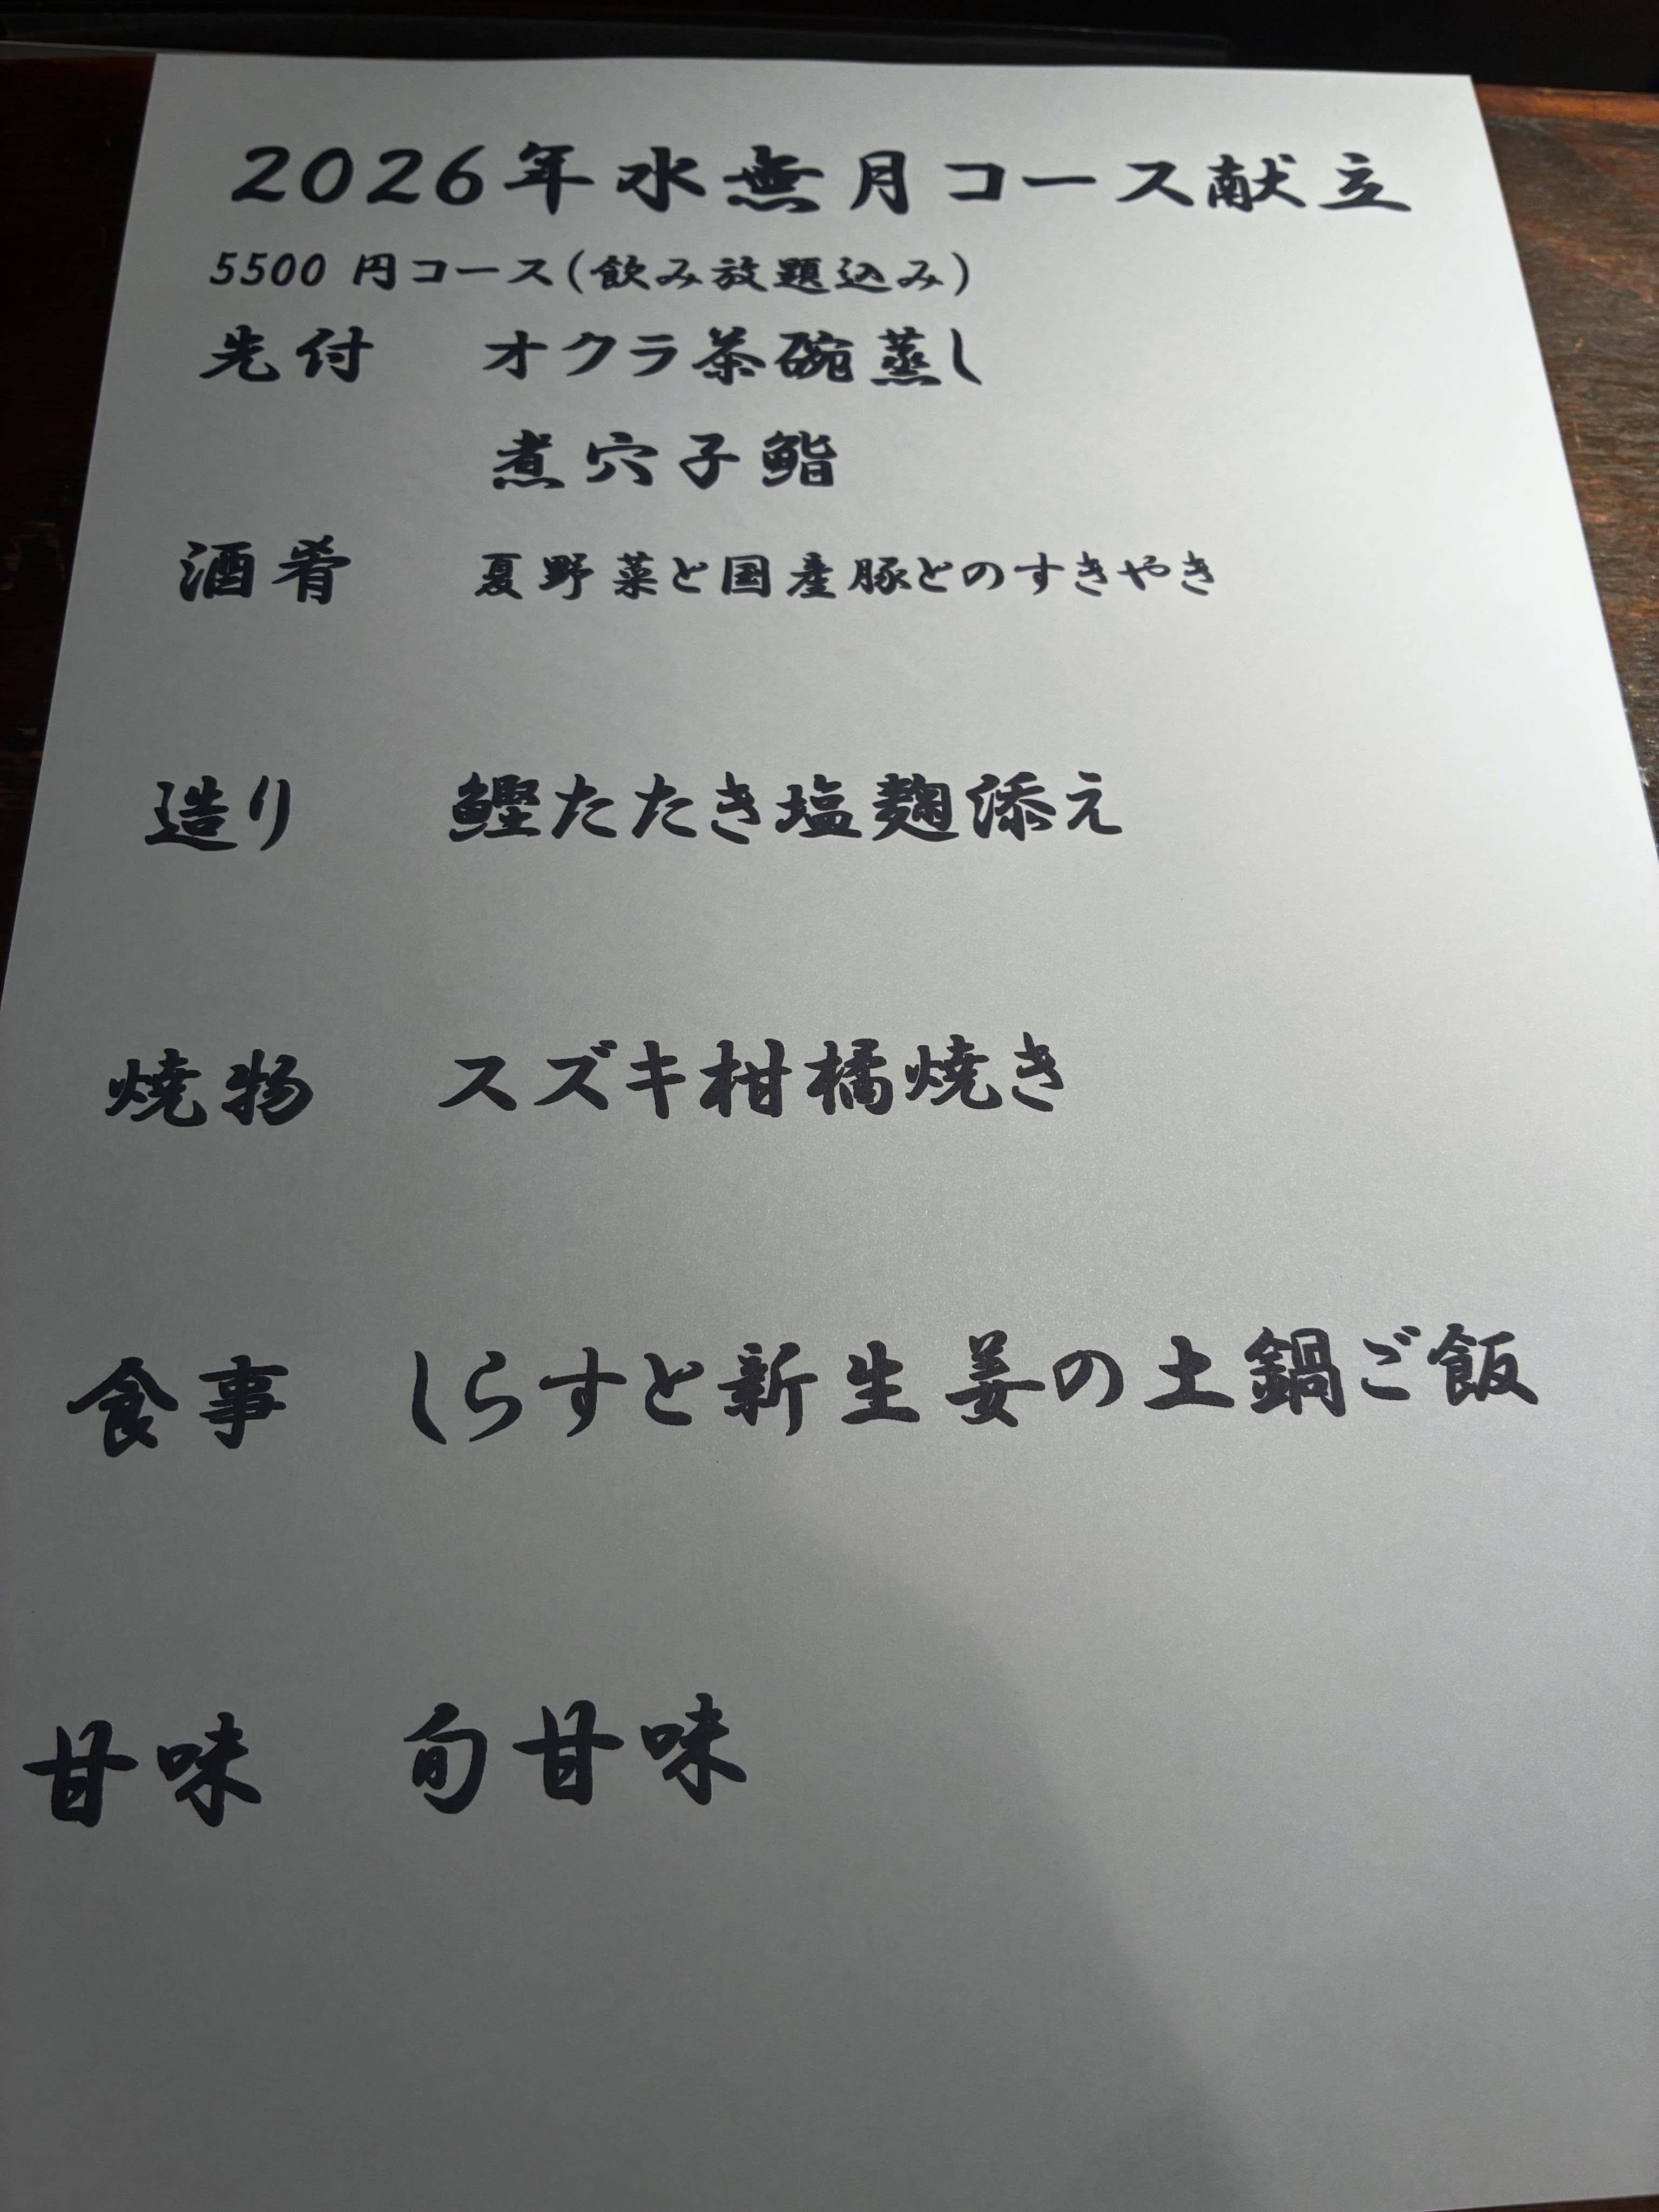 2026年水無月コース献立
5500 円コース(飲み放題込み)
先付 オクラ茶碗蒸し
煮穴子鮨
酒肴 夏野菜と国産豚とのすきやき
造り 鰹たたき塩麹添え
焼物 スズキ柑橘焼き
食事 しらすと新生姜の土鍋ご飯
甘味 旬甘味